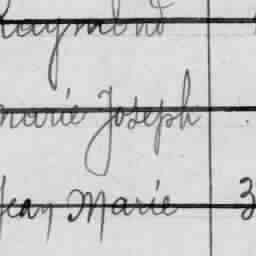 Raymond
Marie Joseph
Jean Marie 3